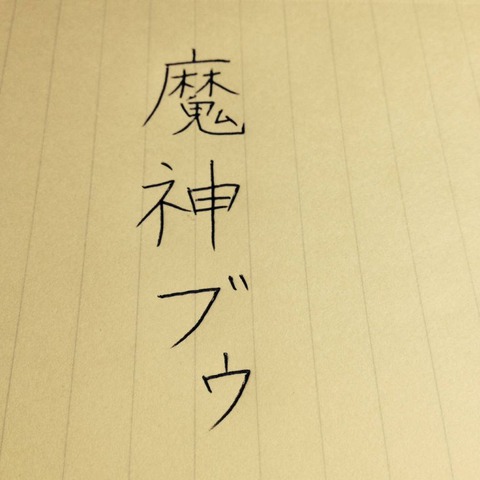 魔神ブウ